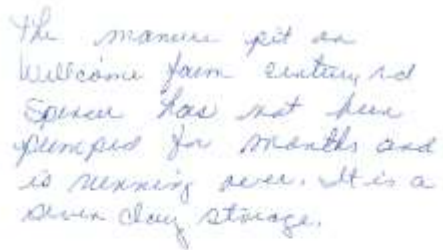 The manure pit on
Willcome farm century rd
Spencer has not been
pumped for months and
is running over. It is a
seven day storage.